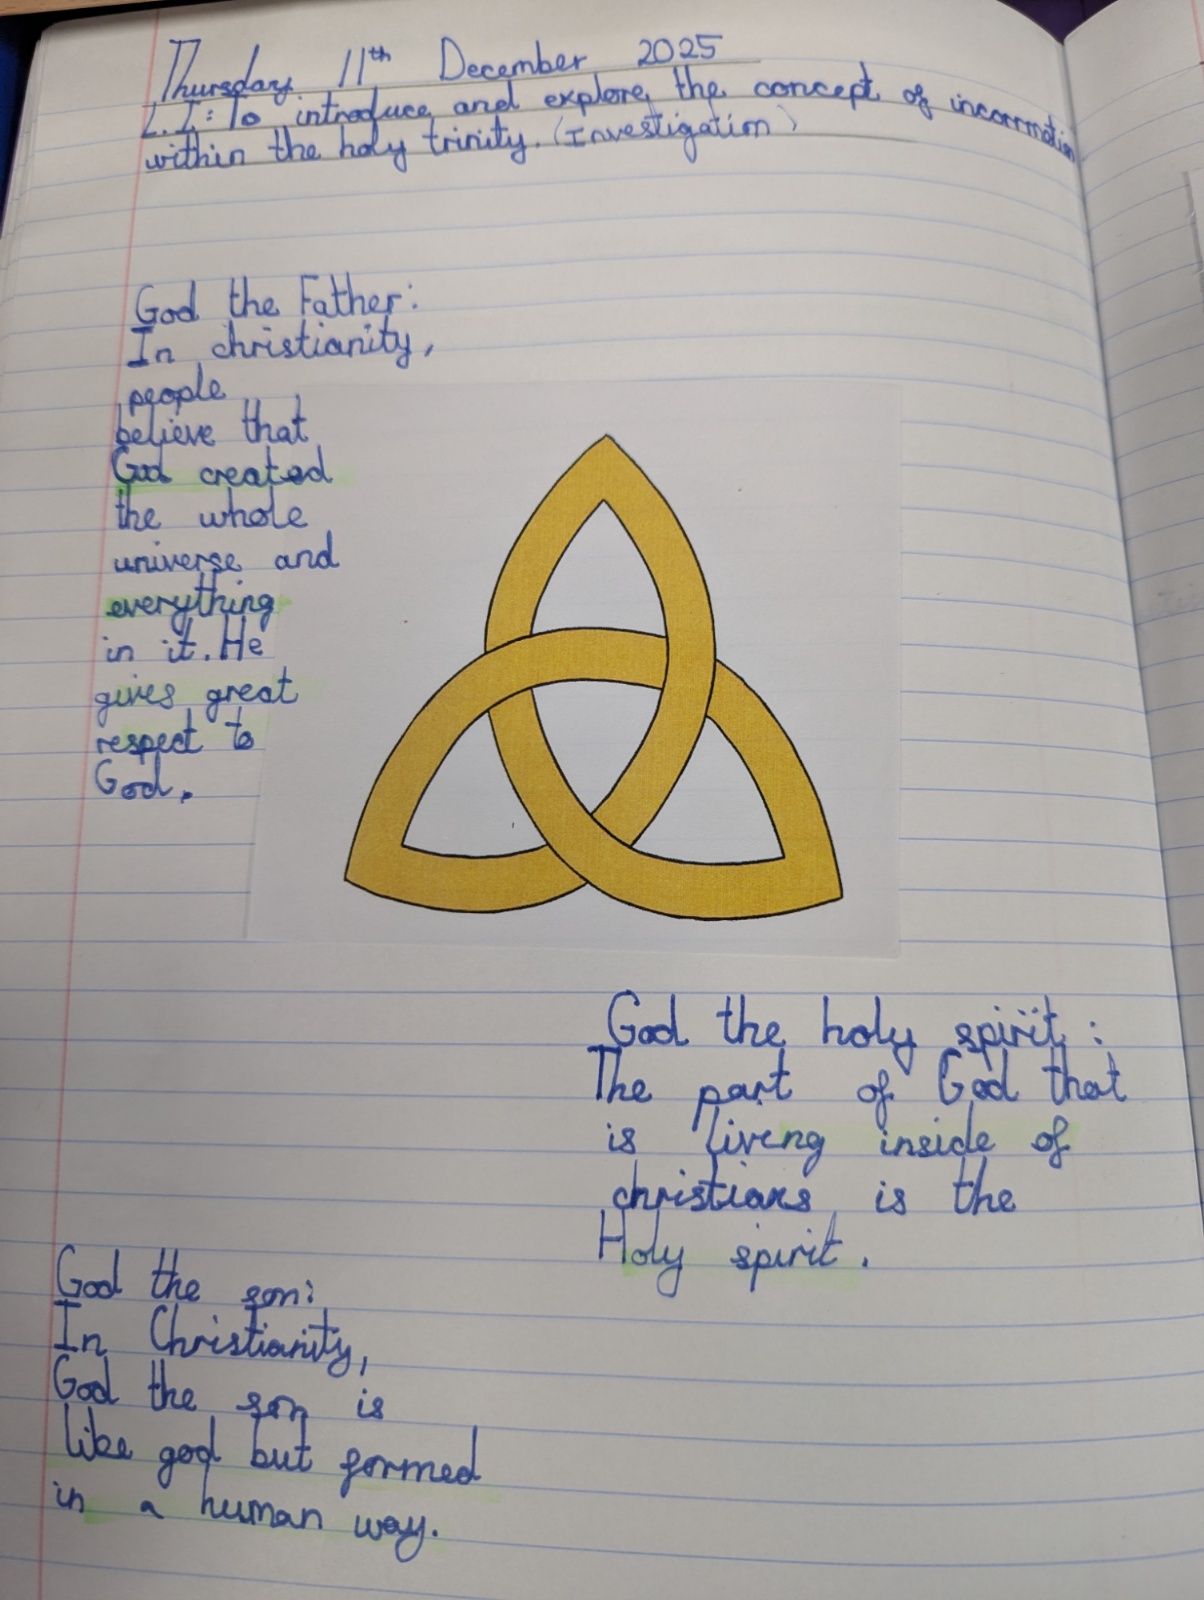 Thursday 11th December 2025
L.I: To introduce and explore the concept of incarrnation
within the holy trinity. (Investigation)
God the Father:
In christianity,
people
believe that
God created
the whole
universe and
everything
in it. He
gives great
respect to
God.
God the holy spirit:
The part of God that
is living inside of
christians is the
Holy spirit.
God the son:
In Christianity,
God the son is
like god but formed
in a human way.